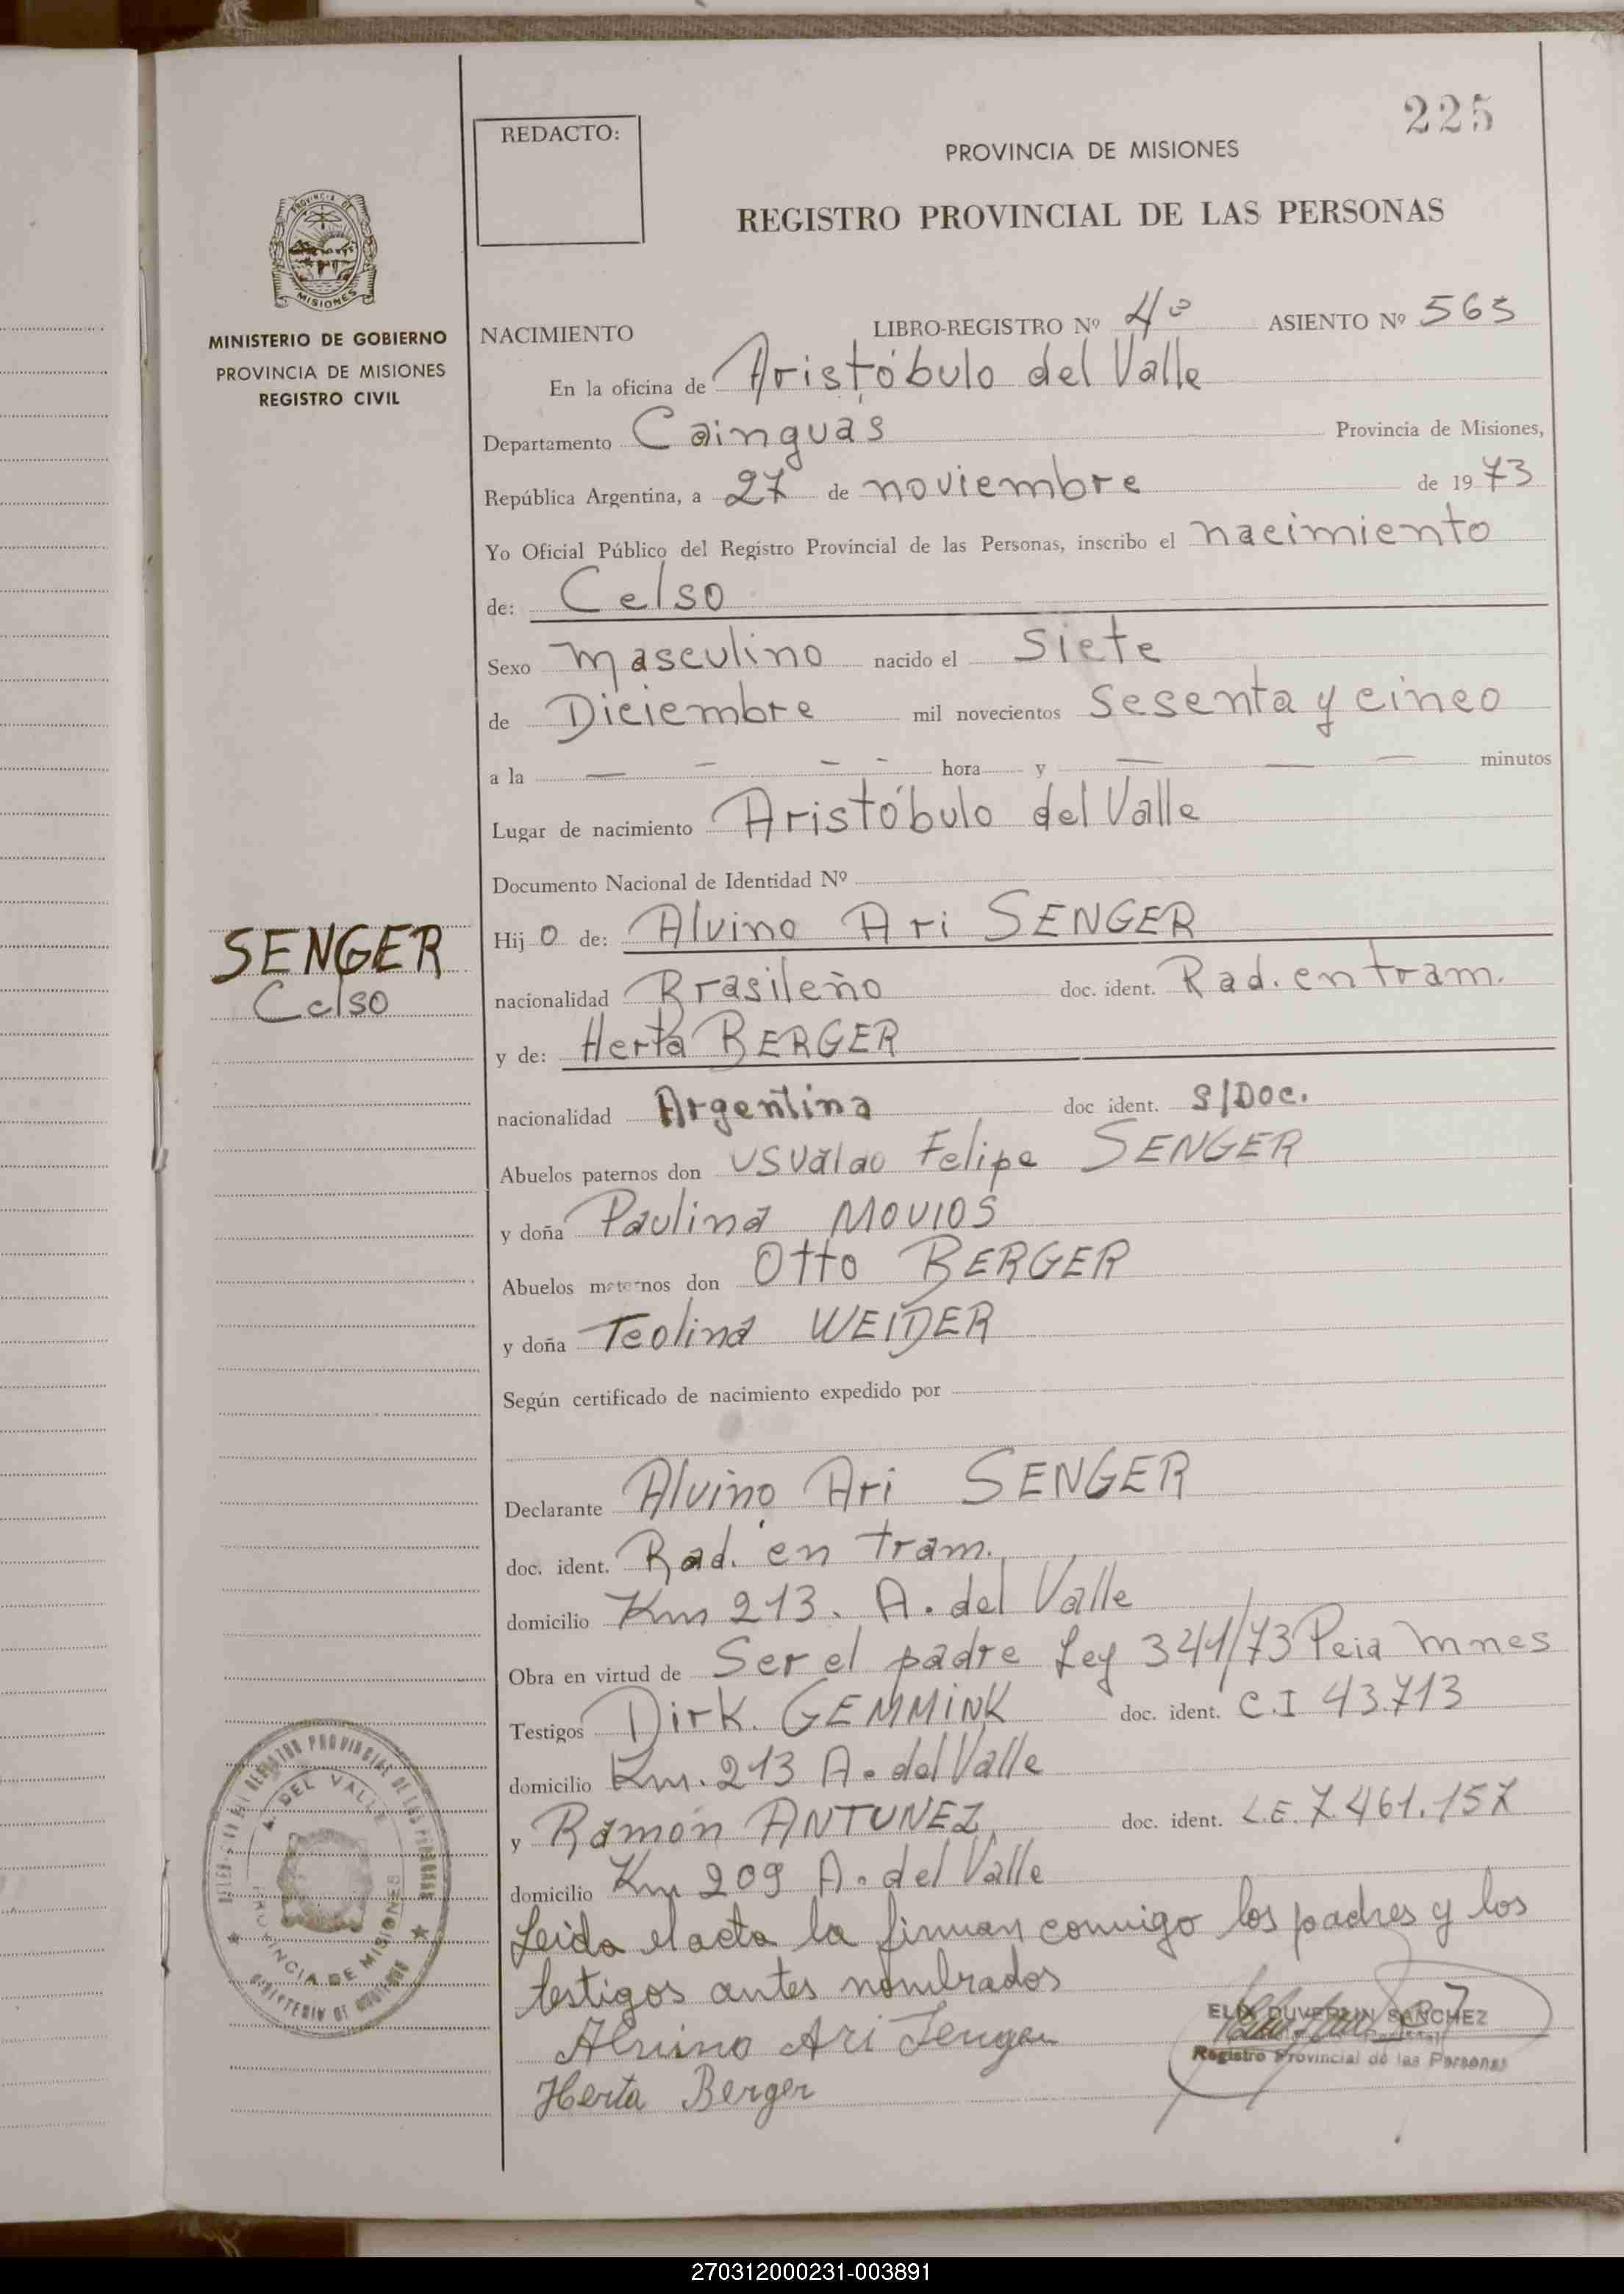 225
REDACTO:
PROVINCIA DE MISIONES
REGISTRO PROVINCIAL DE LAS PERSONAS
PROVINCIA DE
MISIONES
MINISTERIO DE GOBIERNO
PROVINCIA DE MISIONES
REGISTRO CIVIL
NACIMIENTO LIBRO-REGISTRO Nº 4º ASIENTO Nº 563
En la oficina de Aristóbulo del Valle
Departamento Cainguás Provincia de Misiones,
República Argentina, a 27 de noviembre de 1973
Yo Oficial Público del Registro Provincial de las Personas, inscribo el nacimiento
de: Celso
Sexo masculino nacido el Siete
de Diciembre mil novecientos Sesenta y cinco
a la — - - - hora y — — — minutos
Lugar de nacimiento Aristóbulo del Valle
Documento Nacional de Identidad Nº
Hijo de: Alvino Ari SENGER
SENGER
Celso
nacionalidad Brasileño doc. ident. Rad. en tram.
y de: Herta BERGER
nacionalidad Argentina doc ident. S/Doc.
Abuelos paternos don Felipe SENGER
y doña Paulina MOVIOS
Abuelos maternos don Otto BERGER
y doña Teolina WEIDER
Según certificado de nacimiento expedido por
Declarante Alvino Ari SENGER
doc. ident. Rad. en tram.
domicilio Km 213. A. del Valle
Obra en virtud de Ser el padre Ley 341/73 Pcia Mnes
Testigos Dirk. GEMMINK doc. ident. C.I 43.713
domicilio Km. 213 A. del Valle
y Ramón ANTUNEZ doc. ident. L.E. 7.461.157
domicilio Km 209 A. del Valle
Leida el acta la firman conmigo los padres y los
testigos antes nombrados
Alvino Ari Senger
Herta Berger
ELIX DUVERLIN SANCHEZ
Registro Provincial de las Personas
REGISTRO PROVINCIAL DE LAS PERSONAS
A. DEL VALLE
PROVINCIA DE MISIONES
MINISTERIO DE GOBIERNO
270312000231-003891